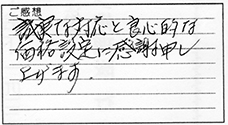 ご感想
誠実な対応と良心的な
価格設定に感謝申し
上げます.